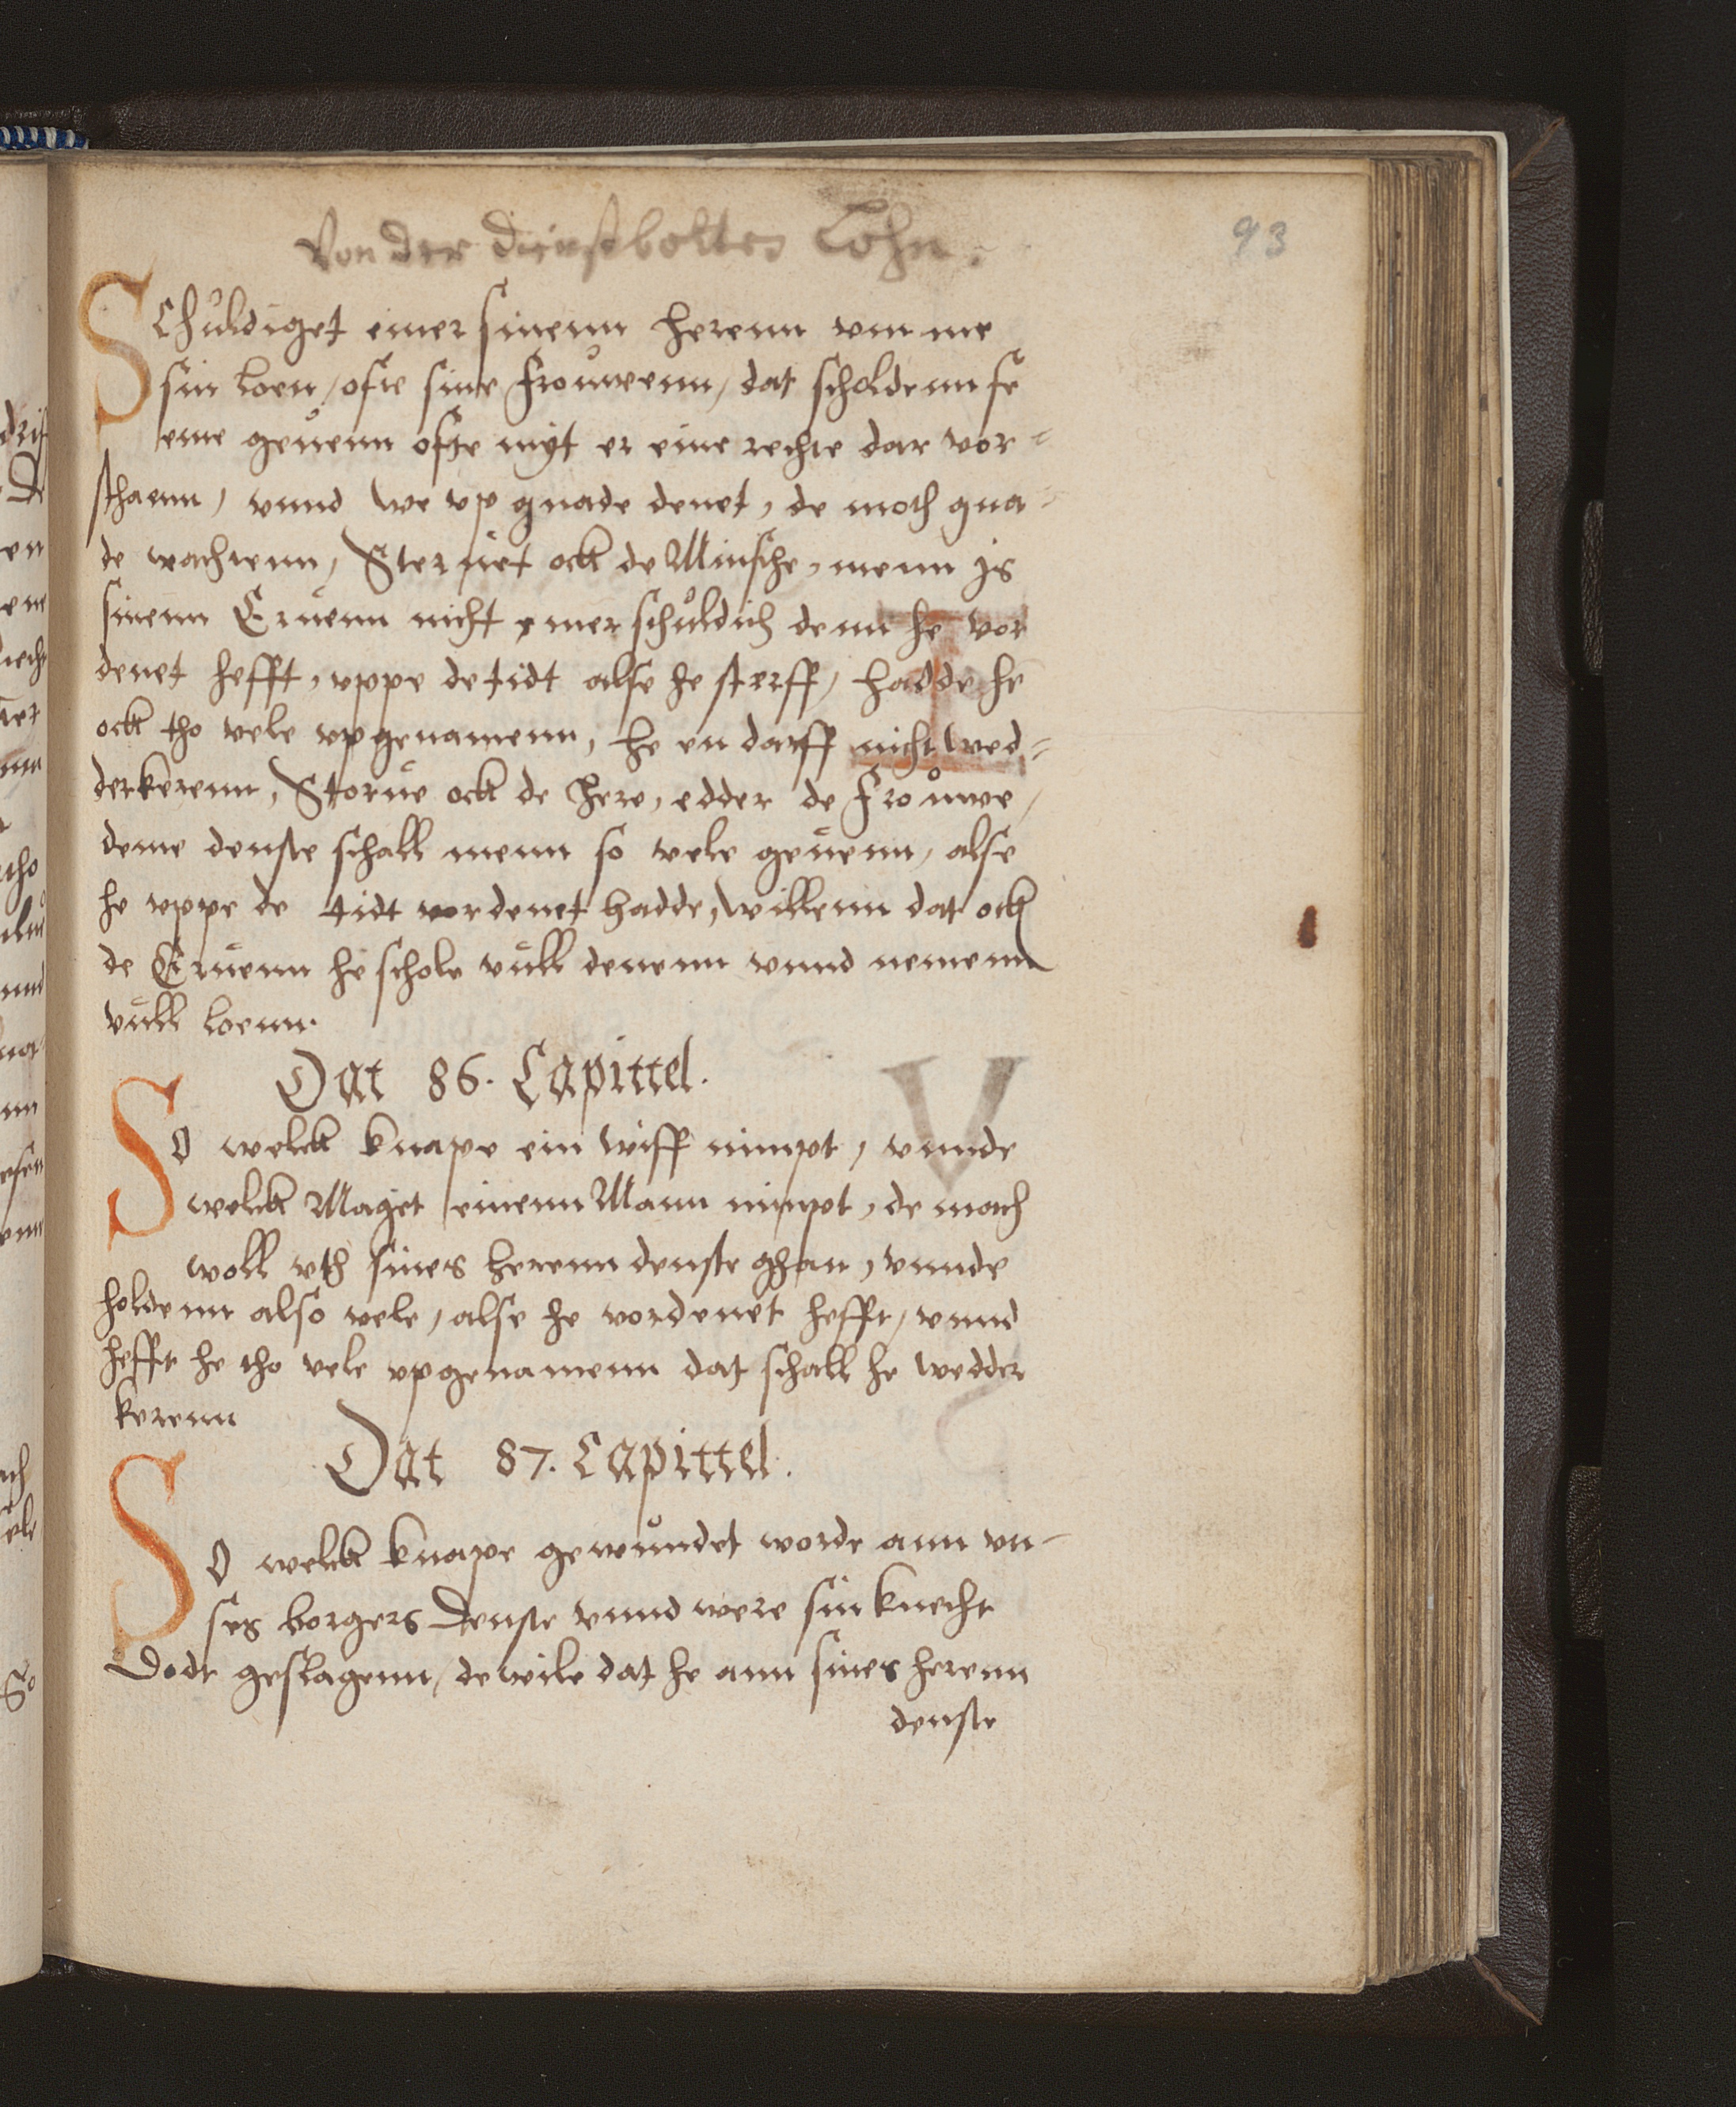 Von der dienstbotten Lohn.
93
SChuldiget einer sinenn herenn vmme
sin loen, ofte sine frouwenn, dat scholdenn se
eme geuenn ofte myt er eine rechte dar vor-
sthaenn, vnnd we vp gnade denet, de moth gna-
de wachtenn, Steruet ock de Minsche, menn is
sinenn Eruenn nicht emer schuldich denn he vor
denet hefft, vppe de tidt alse he sterff, hadde he
ock tho vele vpgenamenn, he en darff nicht wed-
derkerenn, Storue ock de here, edder de frouwe,
deme denste schall menn so vele geuenn, alse
he vppe de tidt vordenet hadde, willenn dat ock
de Eruenn he schole vull denenn vnnd nemenn
vull loenn.
Dat 86. Capittel.
V
SO welck knape ein wiff nimpt, vnnde
welck Maget einenn Mann nimpt, de mach
woll vth sines herenn denste ghan, vnnde
holdenn also vele, alse he vordenet hefft, vnnd
hefft he tho vele vpgenamenn dat schall he wedder
kerenn
Dat 87. Capittel.
SO welck knape gewundet worde ann vn-
ses borgers denste vnnd were sin knecht
Dodt geslagenn, dewile dat he ann sines herenn
denste